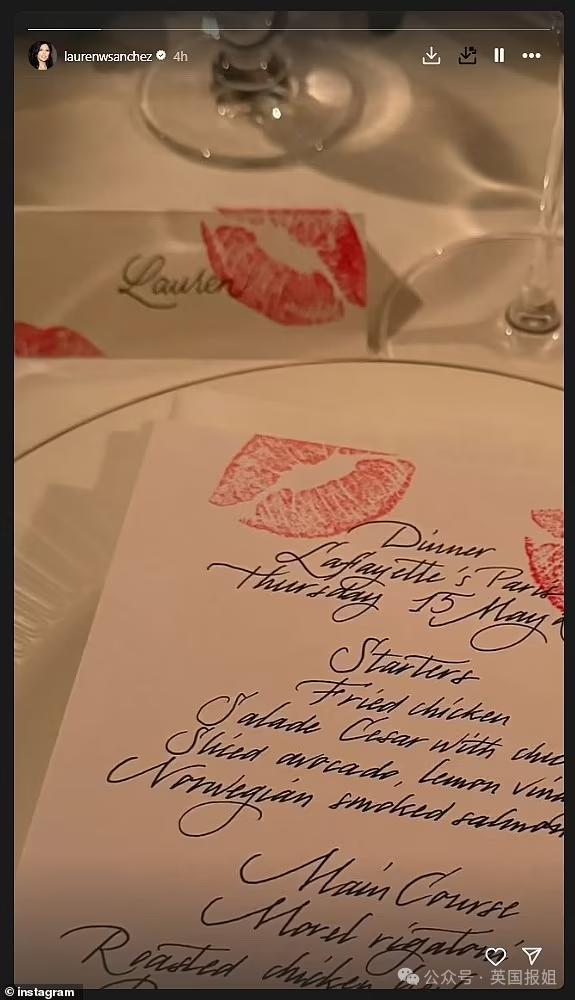 laurenwsanchez 4h
Lauren
Dinner
Laffayette's Paris
Thursday 15 May
Starters
Fried chicken
Salade Cesar with
Sliced avocado, lemon
Norwegian smoked salmon
Main Course
Morel rigatoni
Roasted chicken
公众号 · 英国报姐
© instagram